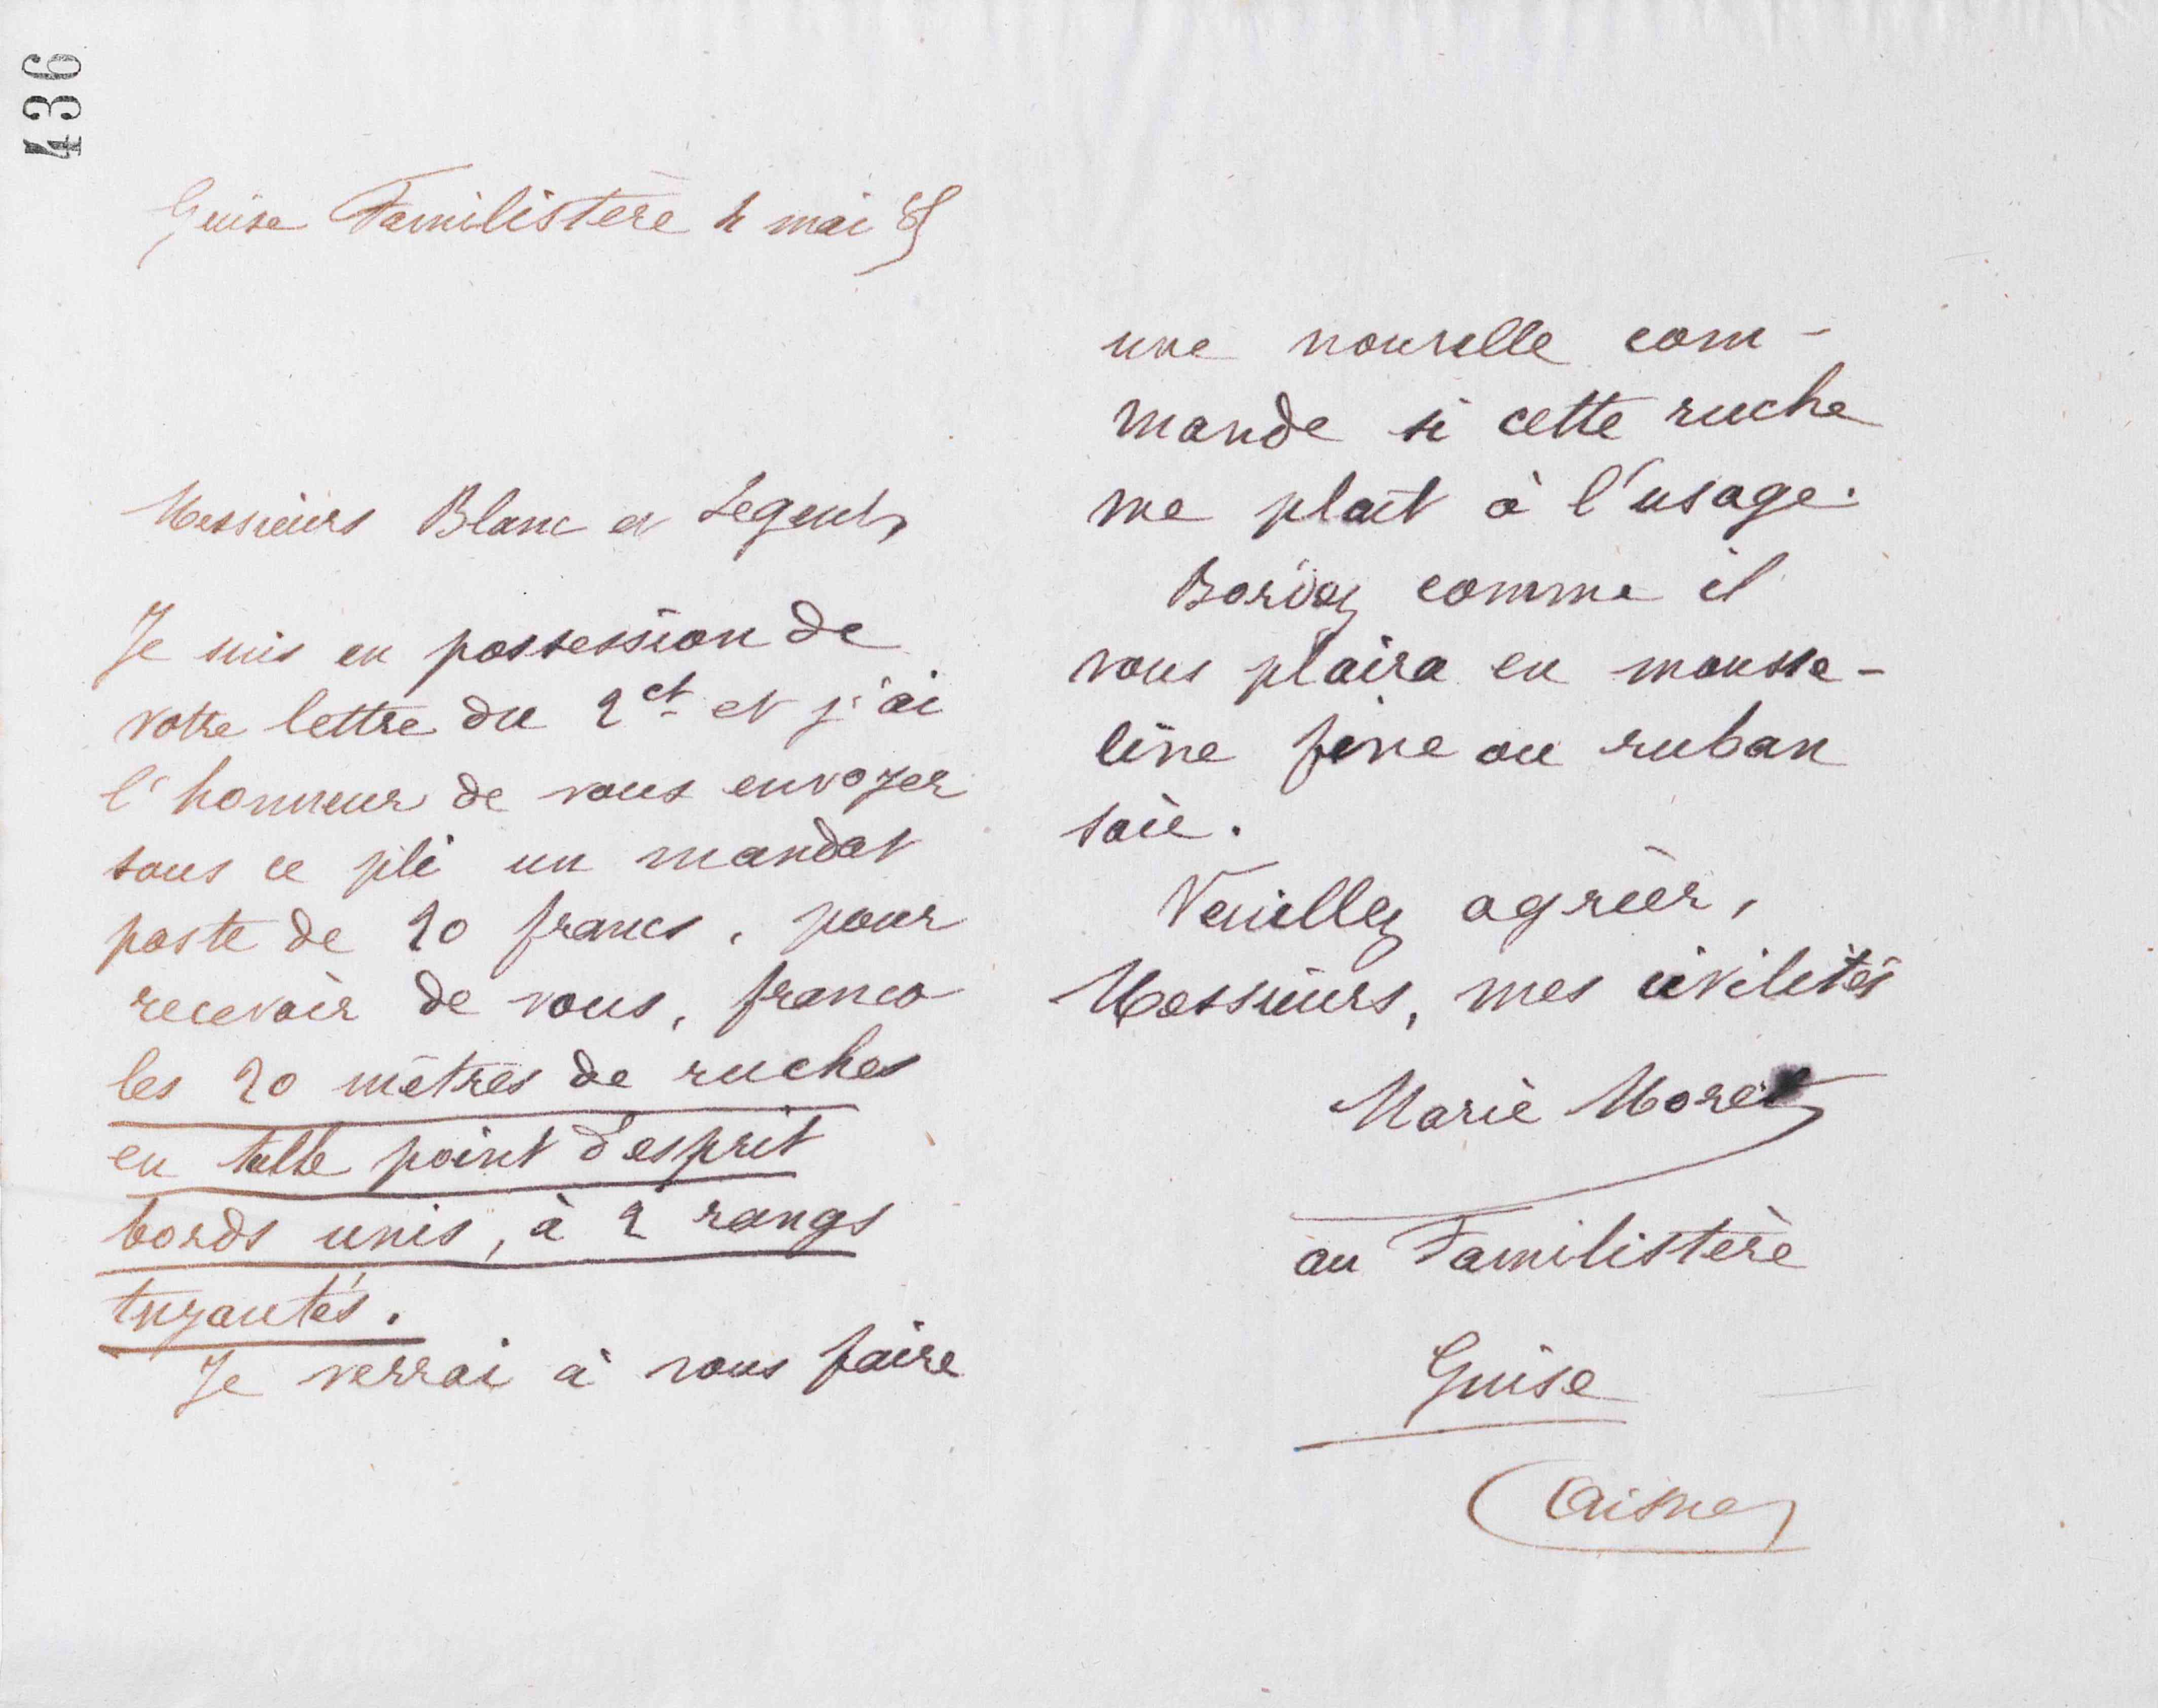 436
Guise Familistère 4 mai 85
Messieurs Blanc et Legent,
Je suis en possession de
votre lettre du 2 ct et j'ai
l'honneur de vous envoyer
sous ce pli un mandat
poste de 20 francs, pour
recevoir de vous, franco
les 20 mètres de ruches
en tulle point d'esprit
bords unis, à 2 rangs
tuyautés.
Je verrai à vous faire
une nouvelle com-
mande si cette ruche
me plaît à l'usage.
Bordez comme il
vous plaira en mousse-
line fine ou ruban
soie.
Veuillez agréer,
Messieurs, mes civilités
Marie Moret
au Familistère
Guise
(Aisne)